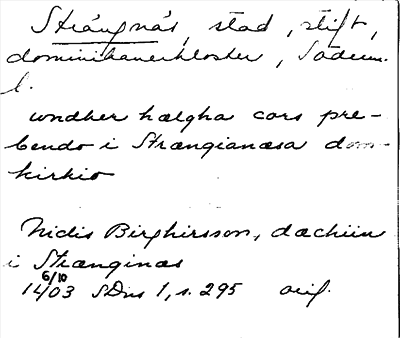 Strängnäs, stad, stift,
dominikanerkloster, Söderm.
l.
wndher hælgha cors pre-
bendo i Strængianæsa dom-
kirkio
Nidis Birghirsson, dæchin
i Strænginæs
14 6/10 03 SDns 1, s. 295 orig.